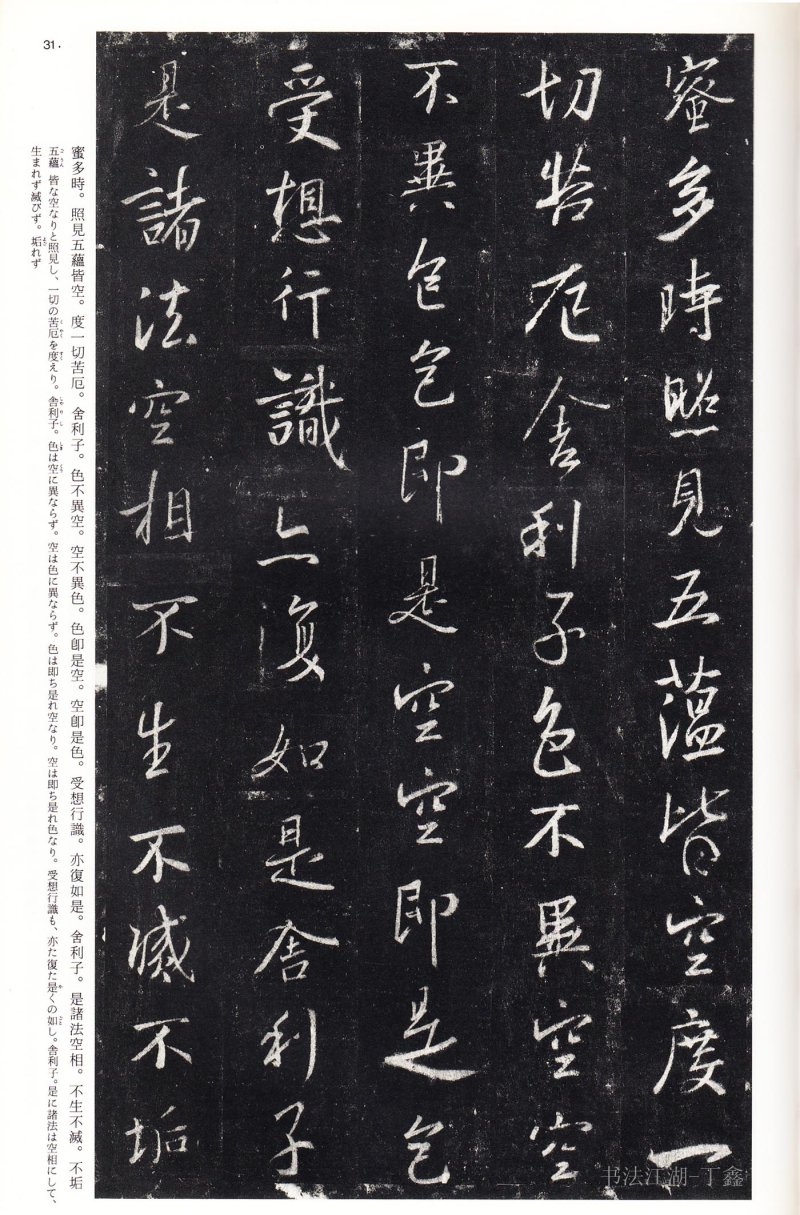 蜜多時照見五蘊皆空度一
切苦厄舍利子色不異空空
不異色色即是空空即是色
受想行識亦復如是舍利子
是諸法空相不生不滅不垢
蜜多時。照見五蘊皆空。度一切苦厄。舍利子。色不異空。空不異色。色卽是空。空卽是色。受想行識。亦復如是。舍利子。是諸法空相。不生不滅。不垢
五蘊皆な空なりと照見し、一切の苦厄を度えり。舎利子。色は空に異ならず。空は色に異ならず。色は即ち是れ空なり。空は即ち是れ色なり。受想行識も、亦た復た是くの如し。舎利子。是に諸法は空相にして、
生まれず滅びず。垢れず
31.
书法江湖-丁鑫